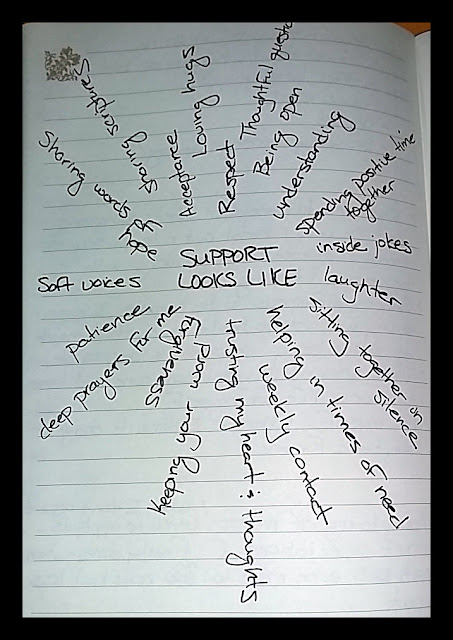 SUPPORT
LOOKS LIKE
Soft voices
Sharing words of
hope
Sharing scriptures
Acceptance
Loving hugs
Respect
Thoughtful
Being open
understanding
spending positive time
together
inside jokes
laughter
sitting together in
silence
helping in times of need
weekly contact
trusting my heart & thoughts
Keeping your word
forgiveness
deep prayers for me
patience